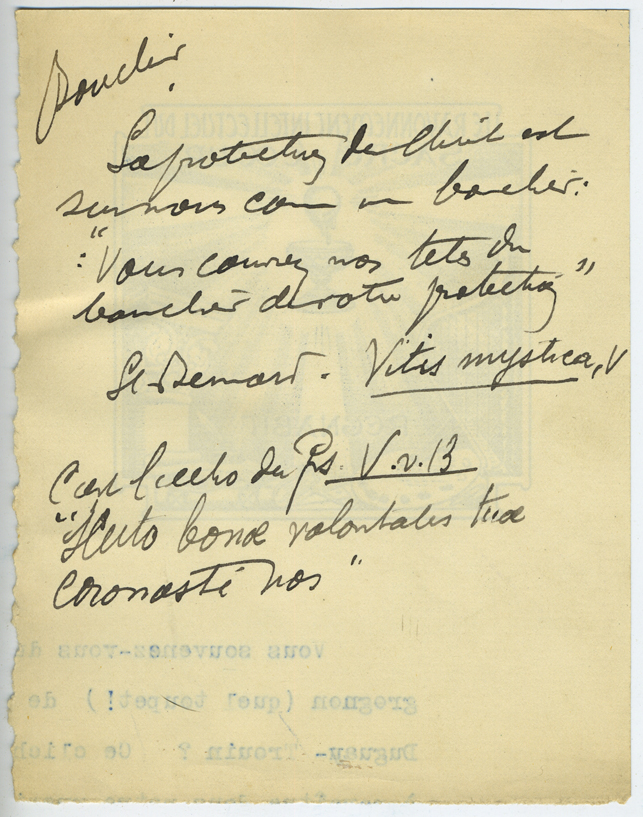 Bouclier
La protection du Christ est
sur nous comme un bouclier:
: "Vous couvrez nos têtes du
bouclier de votre protection"
St Bernard. Vitis mystica, V
C'est l'écho du Ps. V. v. 13
"Scuto bonæ voluntatis tuæ
coronasti nos"
Vous souvenez-vous de
grognon (quel toupet!) de
Duguay-Trouin ? Ce clich